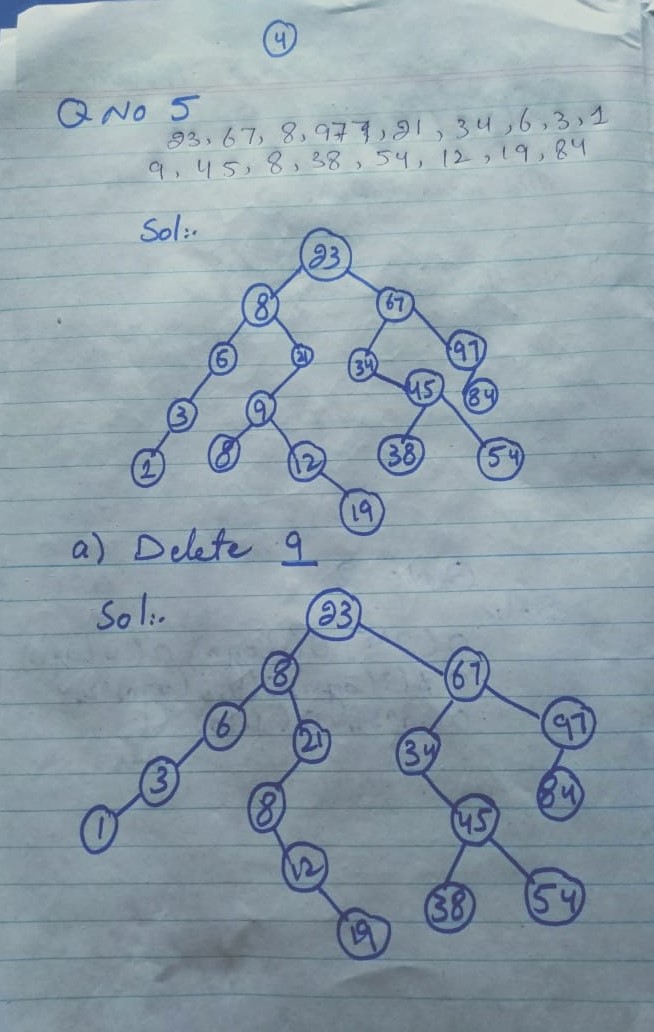 4
Q No 5
23, 67, 8, 97, 21, 34, 6, 3, 1
9, 45, 8, 38, 54, 12, 19, 84
Sol:.
23
8 67
6 21 34 97
3 9 45 84
1 8 12 38 54
19
a) Delete 9
Sol:.
23
8 67
6 21 34 97
3 8 45 84
1 12 38 54
19